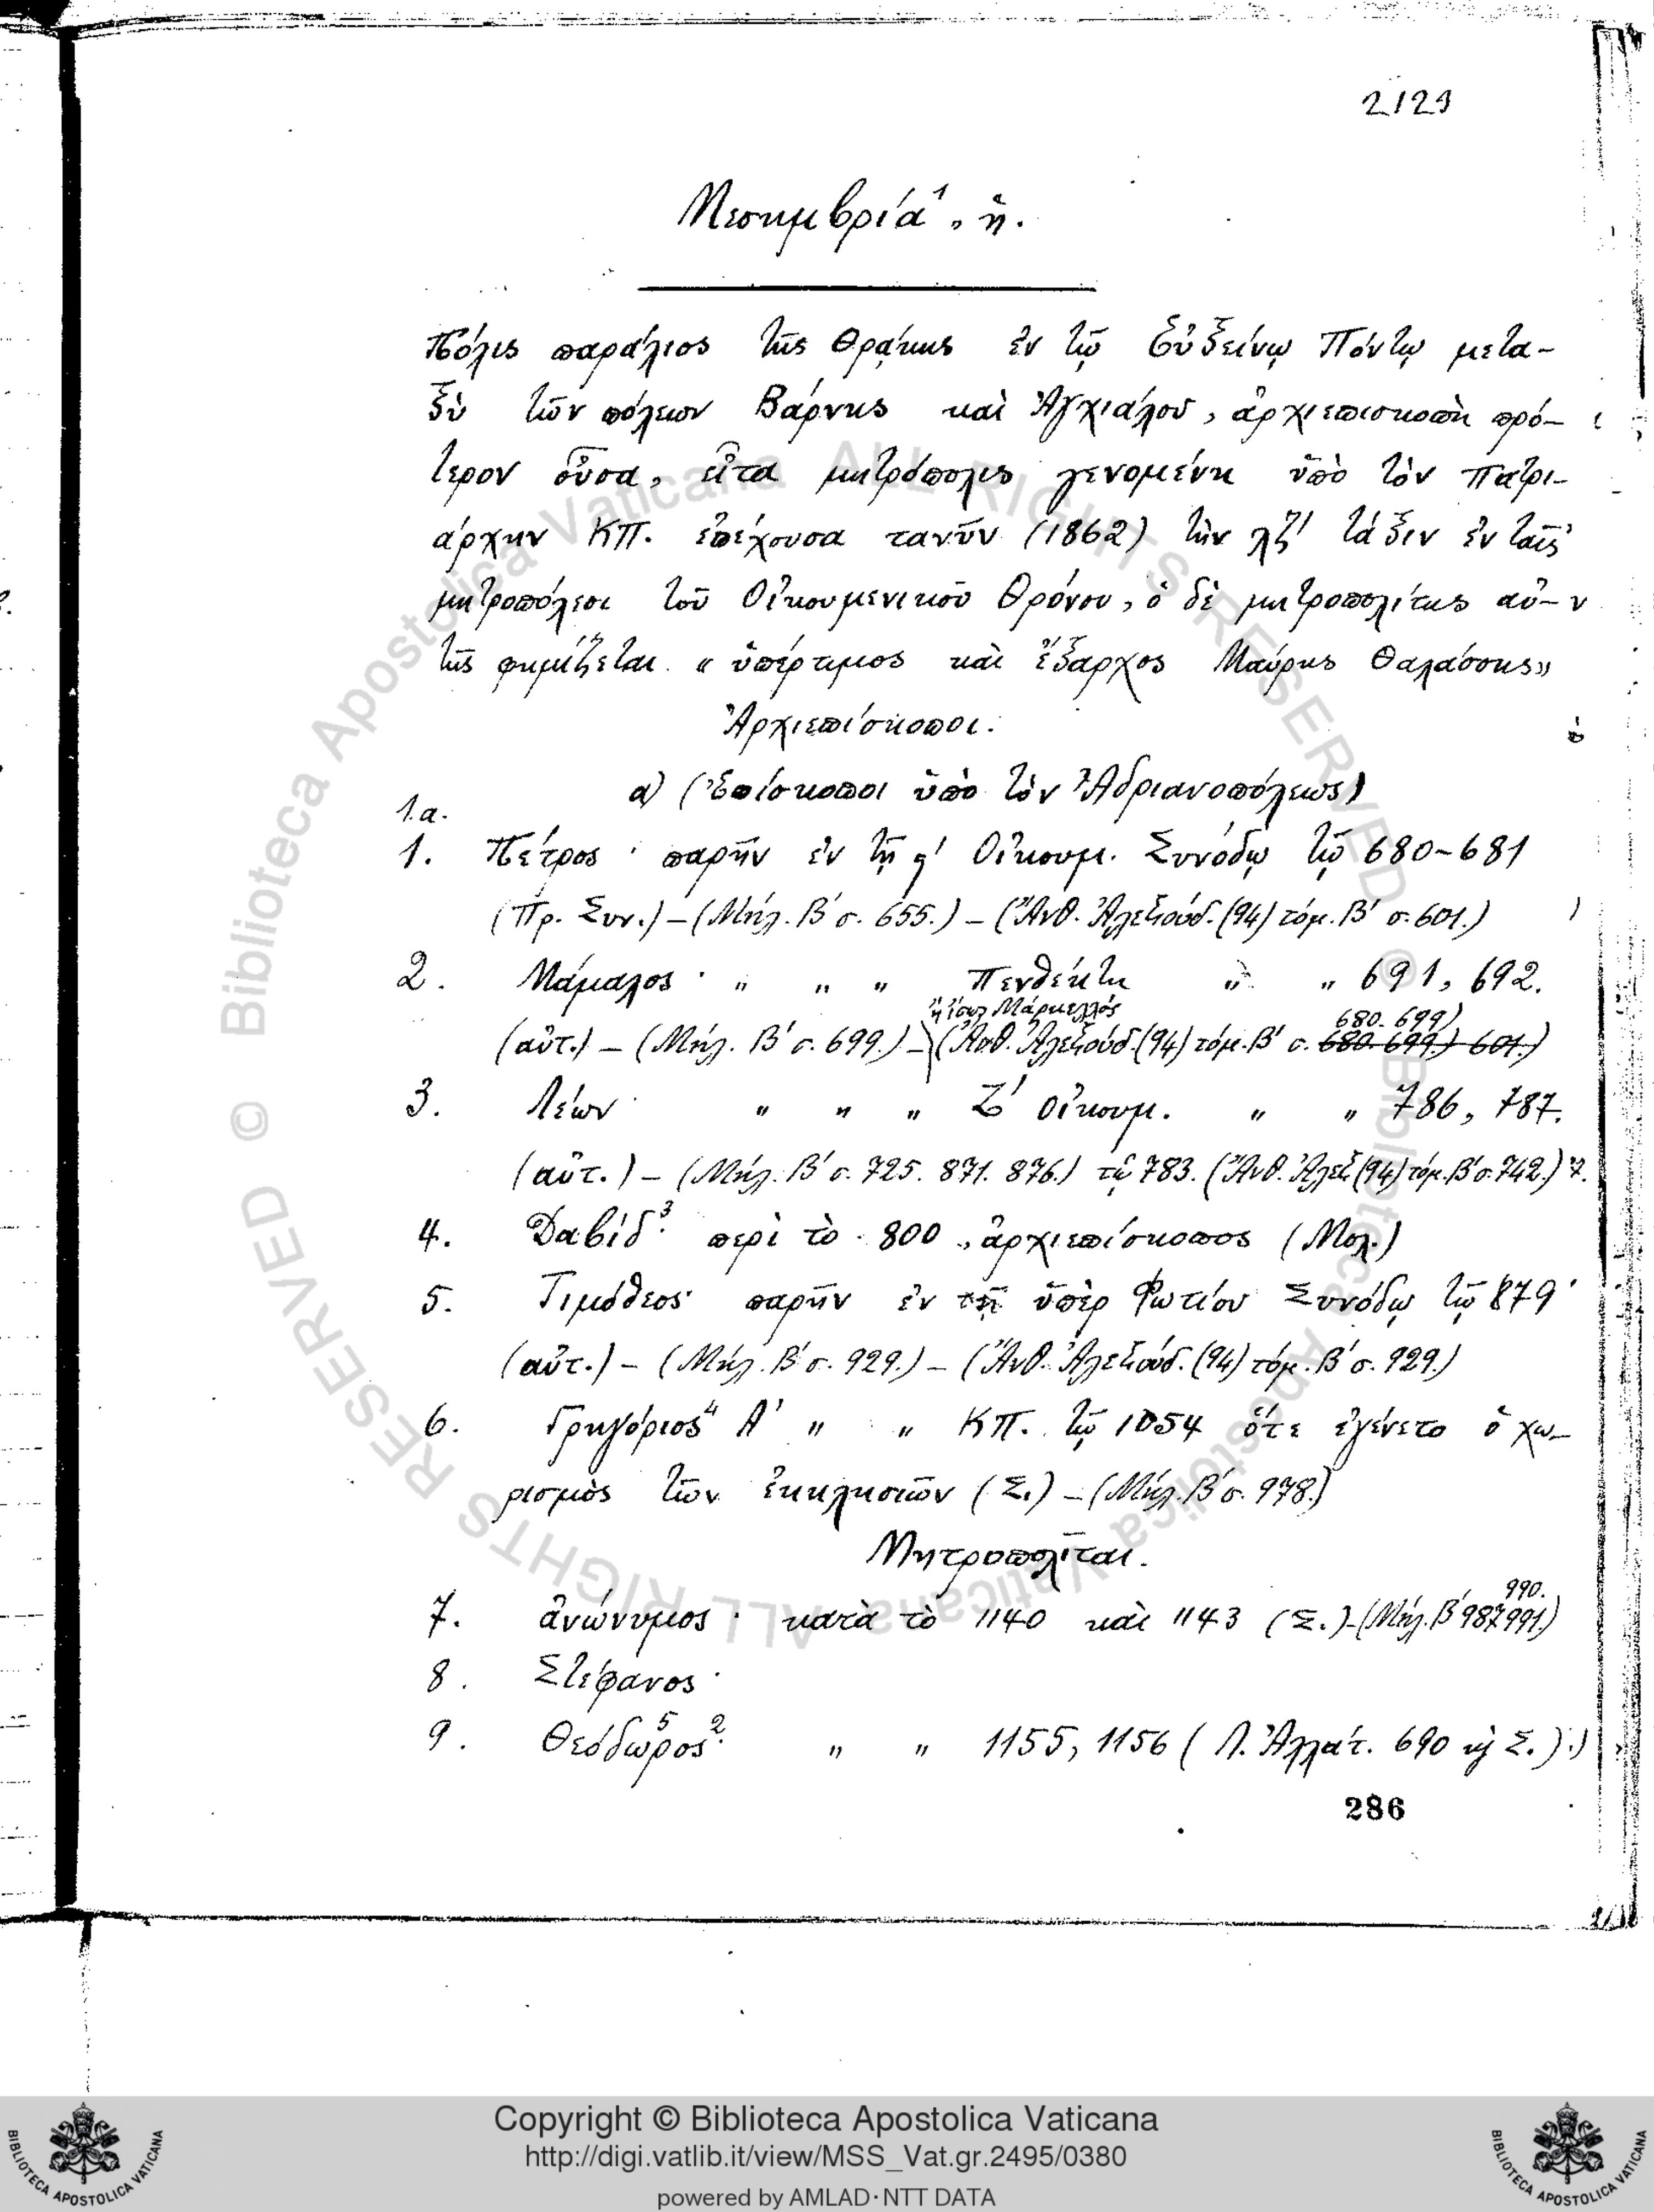 2129
Μεσημβρία¹, ἡ.
Πόλις παράλιος τῆς Θρᾴκης ἐν τῷ Εὐξείνῳ Πόντῳ μετα-
ξὺ τῶν πόλεων Βάρνης καὶ Ἀγχιάλου, ἀρχιεπισκοπὴ πρό-
τερον οὖσα, εἶτα μητρόπολις γενομένη ὑπὸ τὸν Πατρι-
άρχην ΚΠ. ἐπέχουσα τανῦν (1862) τὴν λζ' τάξιν ἐν ταῖς
μητροπόλεσι τοῦ Οἰκουμενικοῦ Θρόνου, ὁ δὲ μητροπολίτης αὐ-
τῆς φημίζεται "ὑπέρτιμος καὶ ἔξαρχος Μαύρης Θαλάσσης"
Ἀρχιεπίσκοποι.
α) (Ἐπίσκοποι ὑπὸ τὸν Ἀδριανοπόλεως)
1.α.
1. Πέτρος · παρῆν ἐν τῇ ϛ' Οἰκουμ. Συνόδῳ τῷ 680-681
(Πρ. Συν.) – (Μήλ. Β' σ. 655.) – (Ἄνθ. Ἀλεξούδ. (94) τόμ. Β' σ. 601.)
2. Μάμαλος · " " " Πενθέκτῃ " " 691, 692.
ἢ ἴσως Μάρκελλος 680. 699)
(αὐτ.) – (Μήλ. Β' σ. 699.) – (Ἄνθ. Ἀλεξούδ. (94) τόμ. Β' σ. 680. 699.) 601.)
3. Λέων · " " " Ζ' Οἰκουμ. " " 786, 787.
(αὐτ.) – (Μήλ. Β' σ. 725. 871. 876.) τῷ 783. (Ἄνθ. Ἀλεξ (94) τόμ. Β' σ. 742.)
4. Δαβίδ³· περὶ τὸ 800, ἀρχιεπίσκοπος (Μολ.)
5. Τιμόθεος· παρῆν ἐν τῇ ὑπὲρ Φωτίου Συνόδῳ τῷ 879·
(αὐτ.) – (Μήλ. Β' σ. 929.) – (Ἄνθ. Ἀλεξούδ. (94) τόμ. Β' σ. 929.)
6. Γρηγόριος⁴ Α' " " ΚΠ. τῷ 1054 ὅτε ἐγένετο ὁ χω-
ρισμὸς τῶν ἐκκλησιῶν (Σ.) – (Μήλ. Β' σ. 978.)
Μητροπολῖται.
990.
7. ἀνώνυμος · κατὰ τὸ 1140 καὶ 1143 (Σ.) – (Μήλ. Β' 987 991.)
8. Στέφανος ·
9. Θεόδωρος⁵ ²· " " 1155, 1156 (Λ. Ἀλλάτ. 690 κ Σ.).)
286
Copyright © Biblioteca Apostolica Vaticana
http://digi.vatlib.it/view/MSS_Vat.gr.2495/0380
powered by AMLAD·NTT DATA
BIBLIOTECA APOSTOLICA VATICANA
BIBLIOTECA APOSTOLICA VATICANA
© Biblioteca Apostolica Vaticana ALL RIGHTS RESERVED © Biblioteca Apostolica Vaticana ALL RIGHTS RESERVED